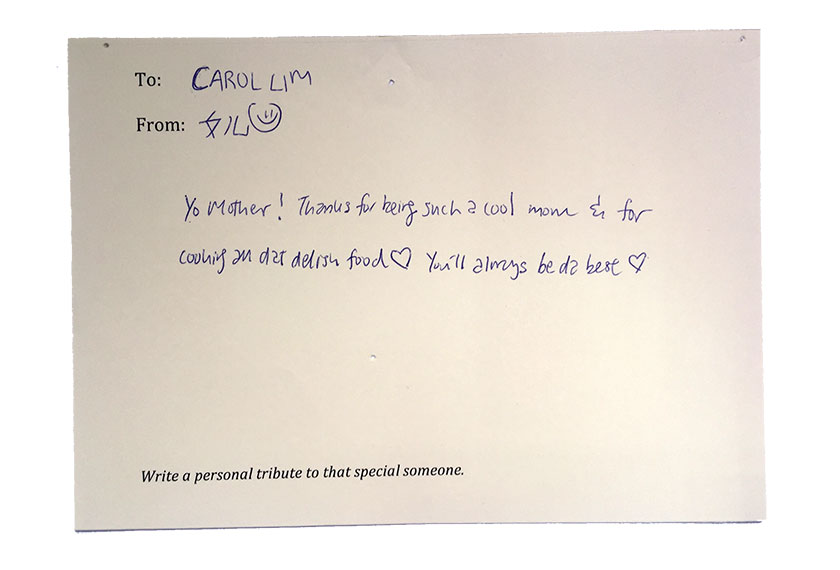 To: CAROL LIM
From: 女儿
Yo Mother! Thanks for being such a cool mom & for
cooking all dat delish food♡ You'll always be da best ♡
Write a personal tribute to that special someone.